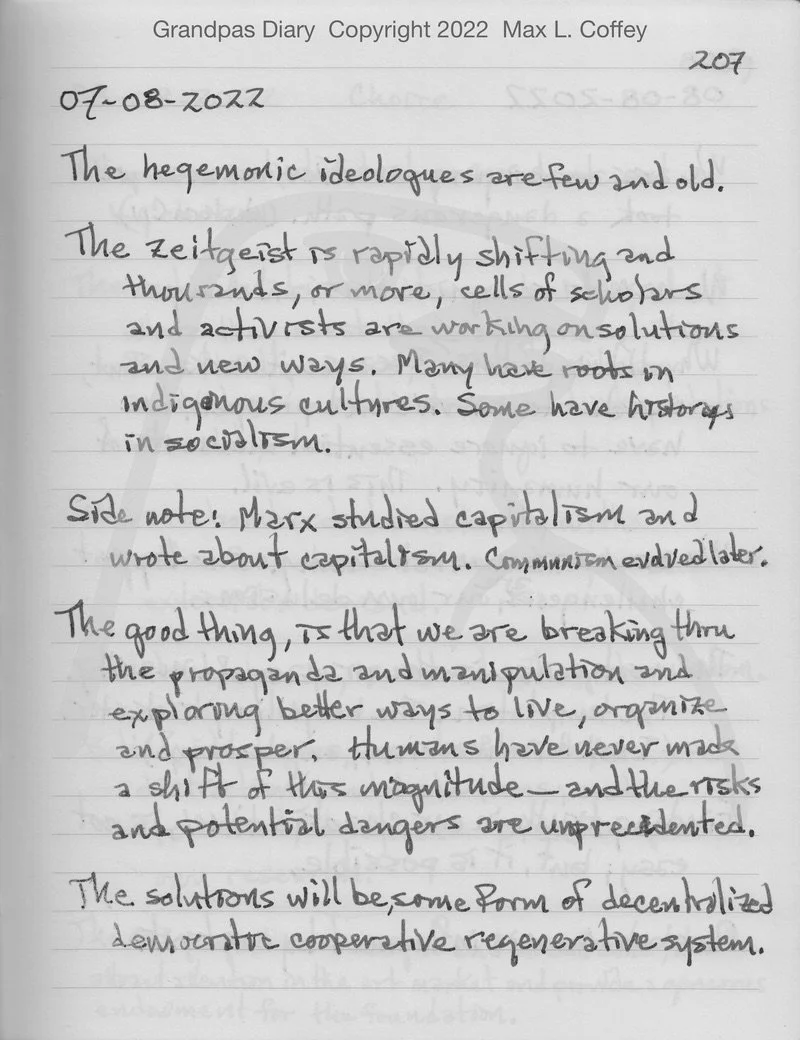 Grandpas Diary Copyright 2022 Max L. Coffey
207
07-08-2022
The hegemonic ideologues are few and old.
The zeitgeist is rapidly shifting and
thousands, or more, cells of scholars
and activists are working on solutions
and new ways. Many have roots in
indigenous cultures. Some have historys
in socialism.
Side note: Marx studied capitalism and
wrote about capitalism. Communism evolved later.
The good thing, is that we are breaking thru
the propaganda and manipulation and
exploring better ways to live, organize
and prosper. Humans have never made
a shift of this magnitude — and the risks
and potential dangers are unprecidented.
The solutions will be, some form of decentralized
democratic cooperative regenerative system.